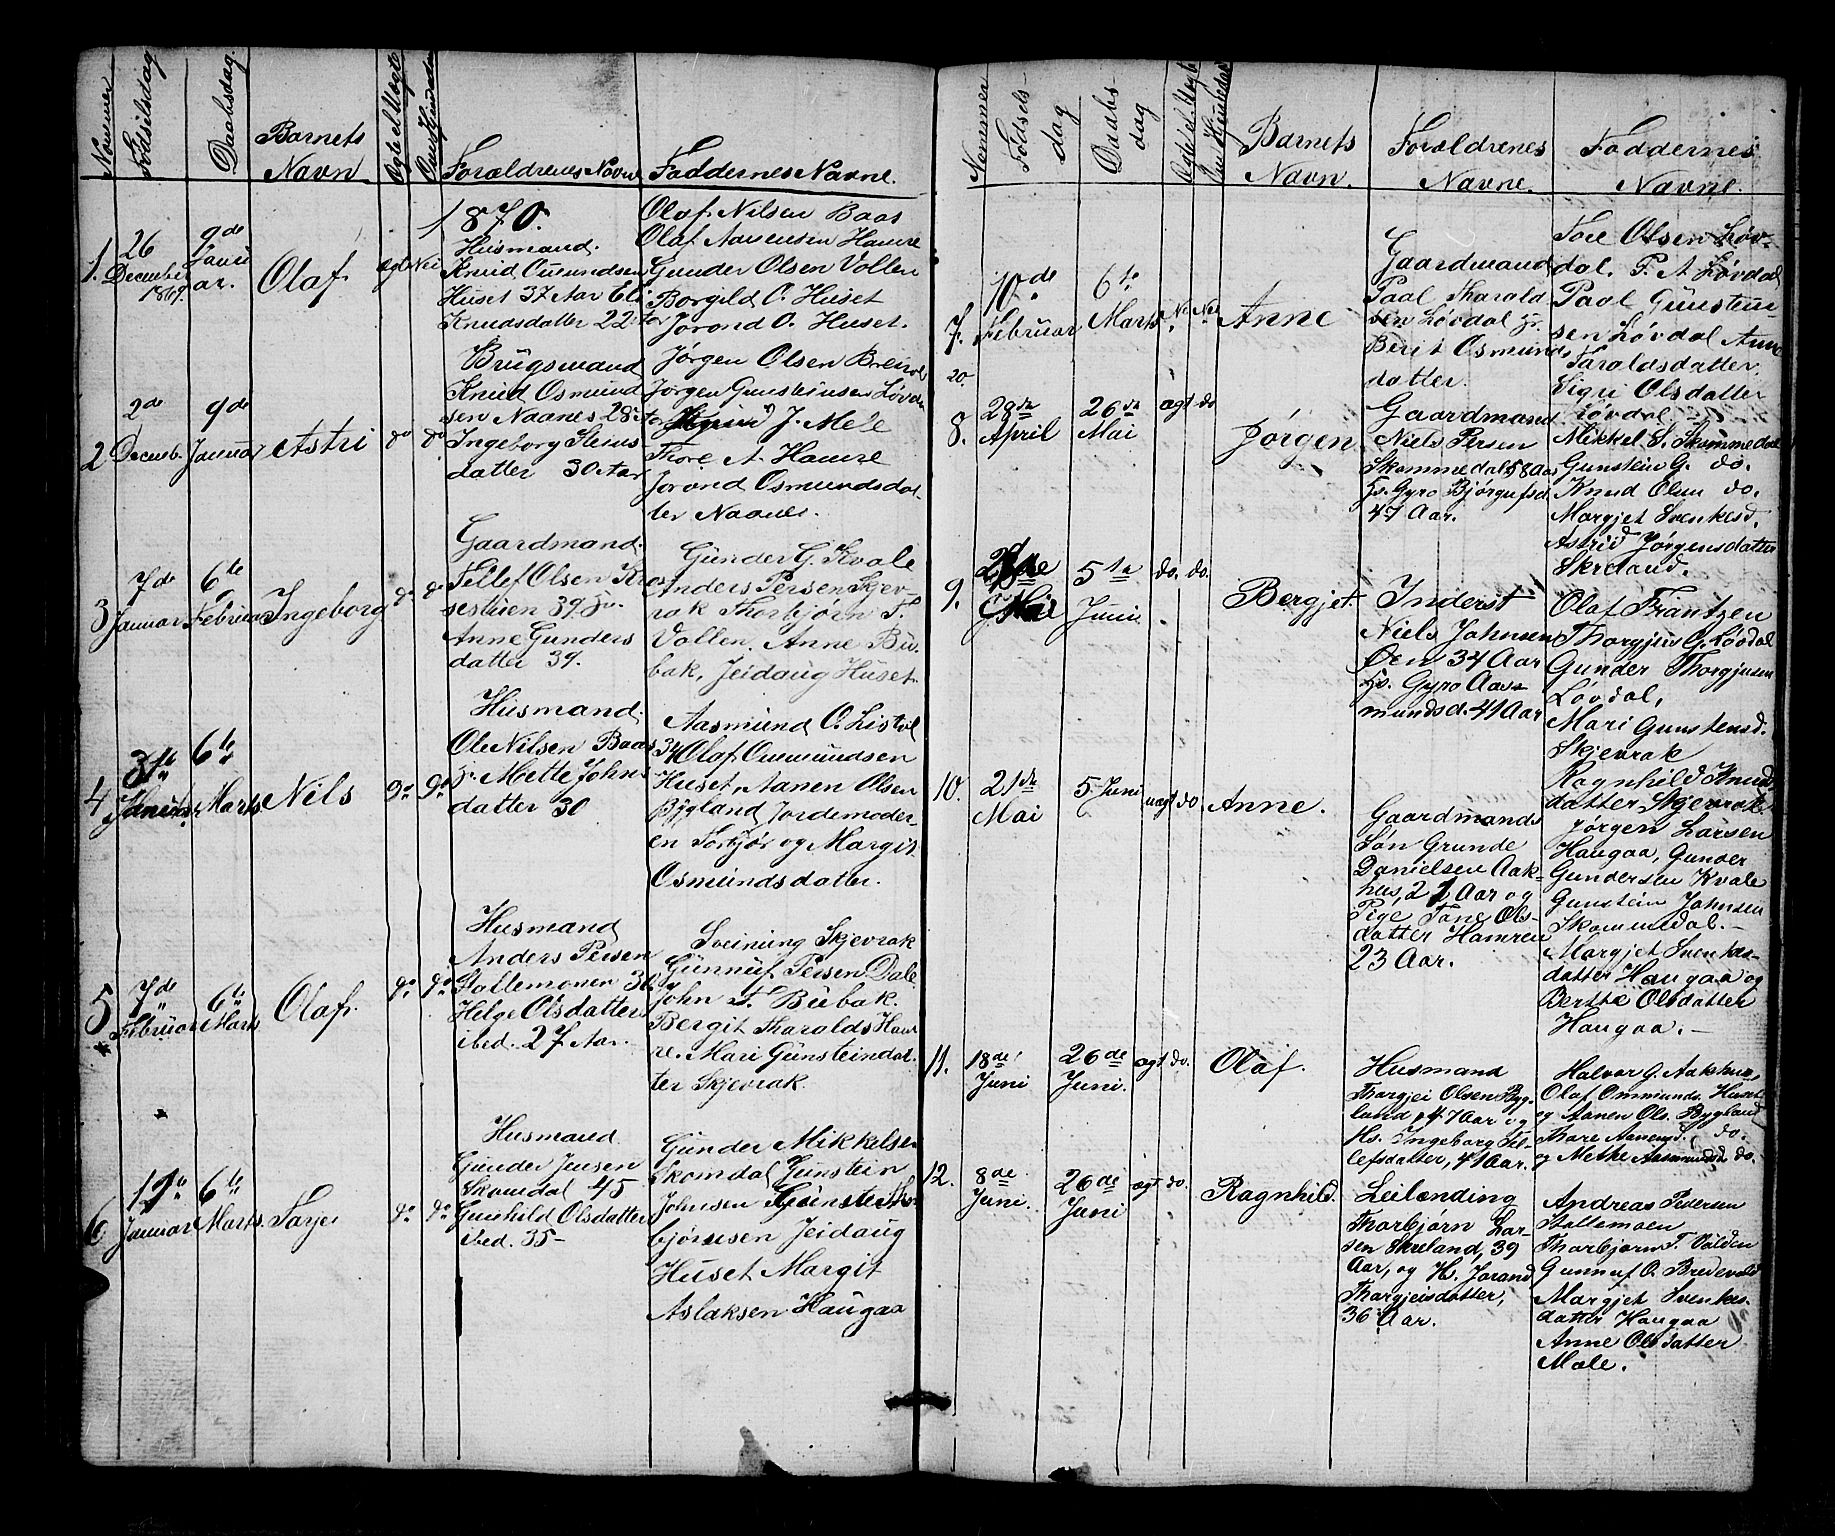 Nommer
Fødselsdag
Daabsdag.
Barnets
Navn
Ægte el. Uægte
Forældrenes Navne
Faddernes Navne.
1870.
1.
26
December
1869.
9de
Janu
ar.
Olaf
ægte
Nei
Husmand.
Knud Oumundsen
Huset 37 Aar Eli
Knudsdatter 22 Aar
Olaf Nilsen Baas
Olaf Aanensen Hamre
Gunder Olsen Vollen
Borgild O. Huset
Jorond O. Huset.
2
2de
Decemb.
9de
Januar
Astri
do
do
Brugsmand
Knud Osmund
sen Naanes 28 Aar
Ingeborg
datter 30 Aar
Jørgen Olsen Breivol
Jørgen Gunsteinsen Løvdal
J. Mele
Thore A. Hamre
Jorond Osmundsdat
ter Naanes.
3
7de
Januar
6te
Februar
Ingeborg
do
do
Gaardmand.
Tellef Olsen
39.
Anne Gunders
datter 39.
Günder G. Kvale
Anders Persen Skjev
rak Thorbjørn T.
Vollen. Anne Bü
bak, Jeidaug Huset.
4
31te
Januar
6te
Marts
Nils
do
do
Husmand.
Ole Nilsen Baas 34
Mette Johns
datter 30
Aasmund O. Listøl
Olaf Oumundsen
Huset, Aanen Olsen
Bygland, Jordemoder
en Torbjør og Margit
Osmundsdatter.
5
7de
Februar
6te
Marts
Olaf
do
do
Husmand
Anders Persen
Stallemonen 36
Helge Olsdatter
ibed. 27 Aar.
Sveinung Skjevrak
Gunnuf Persen Dale
John T. Bübak.
Bergit Tharalds Ham
re. Mari Günsteindat
ter Skjevrak.
6
Januar
6te
Marts.
Tarjei
do
do
Husmand.
Günder Jensen
Skomdal 45
Gunhild Olsdatter
ibed. 35-
Günder Mikkelsen
Skomdal Gunstein
Johnsen
bjørnsen Jeidaug
Huset Margit
Aslaksen Haugaa
Nommer
Fødsels
dag
Daabs
dag
Barnets
Navn.
Forældrenes
Navne.
Faddernes
Navne.
7.
10de
Februar
6te
Marts
Anne
Gaardmand
Paal Tharald
sen Løvdal
Berit Osmunds
datter.
Tore Olsen Løv-
dal. P. A. Løvdal
Paal Günstein
sen Løvdal Anne
Taraldsdatter
Sigri Olsdatter
Løvdal
20.
8.
28de
April
26de
Mai
ægt
do
Jørgen
Gaardmand
Niels Persen
Skommedal, 58 Aar
Hs. Gyro Bjørgufsd.
47 Aar.
Mikkel S. Skommedal
Gunstein G. do.
Knud Olsen do.
Margjet Svenkesd.
Astrid Jørgensdatter
Skreland.
9.
Mai
5te
Juni
do.
do.
Bergjet.
Inderst
Niels Johnsen
Øen 34 Aar
Hs. Gyro Aas-
mundsd. 41 Aar
Olaf Frantzen
Thorgjus G. Løvdal
Gunder Thorgjusen
Løvdal,
Mari Gunstensd.
Skjevrak
Ragnhild Knuds
datter Skjevrak.
10.
21de
Mai
5 Juni
uægt
do
Anne.
Gaardmands
Søn Grunde
Danielsen Aak-
hus, 21 Aar og
Pige Tone Ols-
datter Hamren
23 Aar.
Jørgen Larsen
Haugaa, Gunder
Gundersen Kvale
Gunstein Johnsen
Skommedal.-
Margjet Svenkes-
datter Haugaa og
Berthe Olsdatter
Haugaa.-
11.
18de
Juni
26de
Juni.
ægt
do.
Olaf.
Husmand
Thorgjei Olsen Byg-
land 47 Aar og
Hs. Ingeborg Tel-
lefsdatter, 41 Aar.
Halvor G. Aakhus,
Olaf Ommunds. Huset
og Aanen Ols. Bygland
Thore Aanensd. do.
og Methe Aasmundsd do.
12.
8de
Juni.
26de
Juni
ægt
do.
Ragnhild.
Leilænding
Thorbjørn Lar-
sen Skreland, 39
Aar, og H. Jorand
Thorgjeisdatter,
36 Aar.
Andreas Pedersen
Stallemoen
Thorbjørn T. Valden
Gunnuf O. Bredevold
Margjet Svenkes-
datter Haugaa
Anne Olsdatter
Mæle.